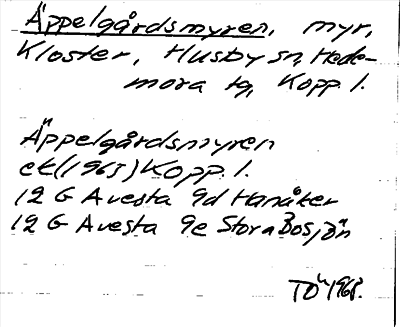 Äppelgårdsmyren, myr,
Kloster, Husby sn, Hede-
mora tg, Kopp. l.
Äppelgårdsmyren
ek (1965) Kopp. l.
12 G Avesta 9d Hanåker
12 G Avesta 9e Stora Bosjön
1968.